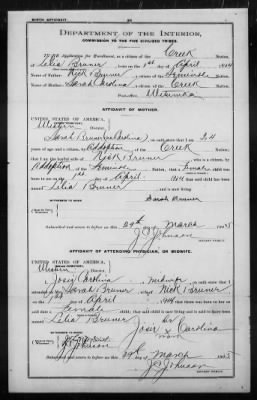 BIRTH AFFIDAVIT.
DEPARTMENT OF THE INTERIOR,
COMMISSION TO THE FIVE CIVILIZED TRIBES.
IN RE Application for Enrollment, as a citizen of the Creek Nation,
of Lelia Bruner, born on the 1st day of April, 1904
Name of Father: Rick Bruner, a citizen of the Seminole Nation.
Name of Mother: Sarah Carolina, a citizen of the Creek Nation.
Postoffice Wewoka
AFFIDAVIT OF MOTHER.
UNITED STATES OF AMERICA,
Western District.
I, Sarah Bruner (nee Carolina), on oath state that I am 24
years of age and a citizen, by Adoption, of the Creek Nation,
that I am the lawful wife of Rick Bruner, a citizen, by
Adoption, of the Seminole Nation, that a female child was
born to me on 1st day of April, 1904 that said child has been
named Lelia Bruner, and is now living.
Sarah Bruner
29th March 1905
J O Johnson
NOTARY PUBLIC.
AFFIDAVIT OF ATTENDING PHYSICIAN, OR MIDWIFE.
UNITED STATES OF AMERICA,
Western District.
I, Josie Carolina, midwife, on oath state that I
attended on Sarah Bruner, wife of Rick Bruner
on the 1st day of April, 1904 that there was born to her
a female child; that said child is now living and is said to have been
named Lelia Bruner
Josie her x mark Carolina
J O Johnson
29th March 1905
J O Johnson
NOTARY PUBLIC.